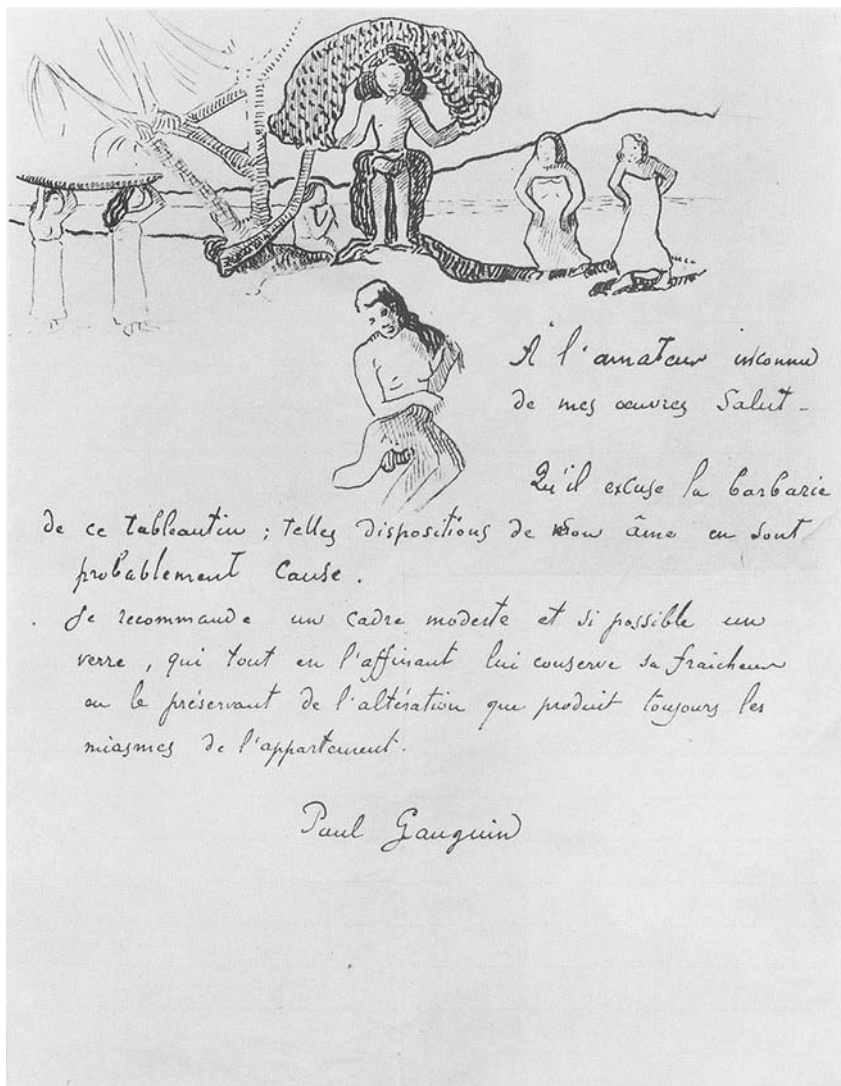 A l'amateur inconnu
de mes œuvres Salut -
Qu'il excuse la barbarie
de ce tableautin ; telles dispositions de mon âme en sont
probablement cause .
. Je recommande un cadre modeste et si possible un
verre , qui tout en l'affinant lui conserve sa fraicheur
en le préservant de l'altération que produit toujours les
miasmes de l'appartement .
Paul Gauguin